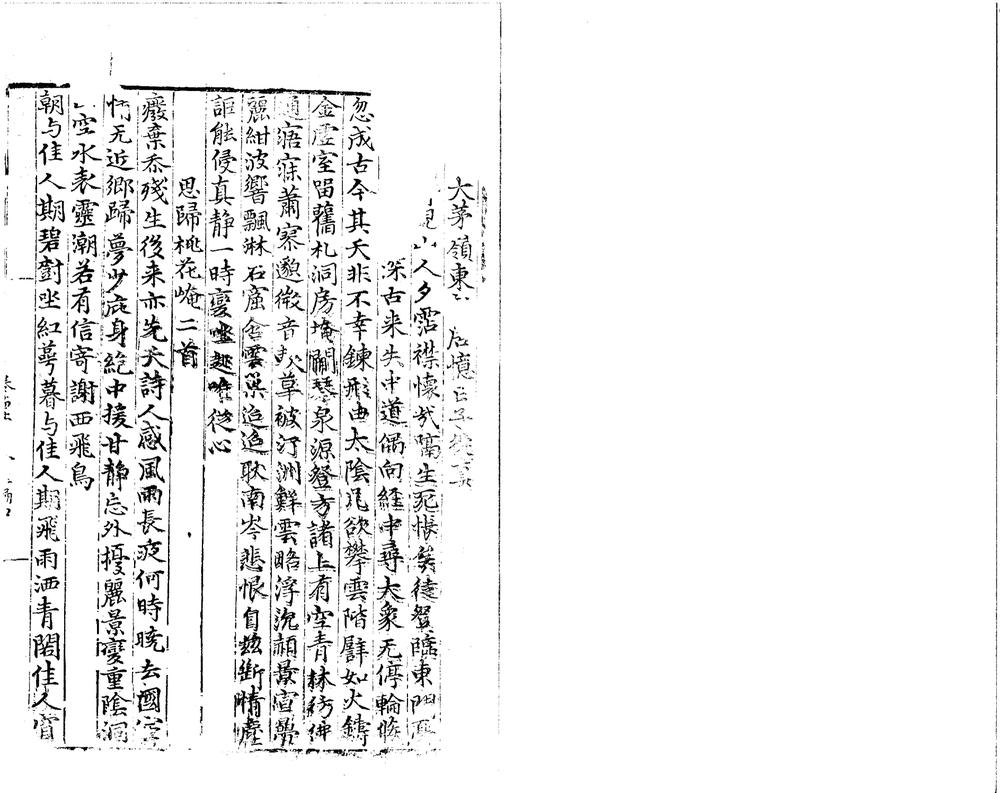 大茅嶺東 居憶 子
山人夕霑襟懷哉隔生死悵矣徒登臨東門
深古来失中道偶向經中尋大象无停輪倏
忽成古今其夭非不幸鍊形由太陰凡欲攀雲階譬如火鑄
金虛室留舊札洞房掩閒琴泉源登方諸上有空青林彷彿
通寤寐蕭寥邈微音 草被汀洲鮮雲略浮沈頳景宣
麗紺波響飄淋石窟含雲巢迢迢耿南岑悲恨自茲斷情塵
詎能侵真静一時變坐起唯從心
思歸桃花崦二首
癈棄忝殘生後来亦先夭詩人感風雨長夜何時曉去國
情无近鄉歸夢少庇身絕中援甘静忘外擾麗景變重陰洞
空水表靈潮若有信寄謝西飛鳥
朝与佳人期碧對坐紅萼暮与佳人期飛雨洒青閣佳人